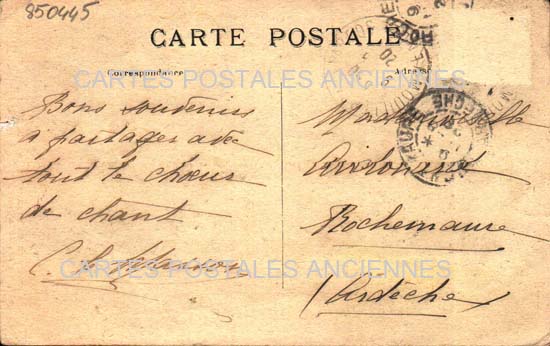 850445
CARTE POSTALE
Correspondance
Adresse
CARTES POSTALES ANCIENNES
Bons souvenirs
à partager avec
tout le chœur
de chant
Mademoiselle
Rochemaure
(Ardèche)
CARTES POSTALES ANCIENNES